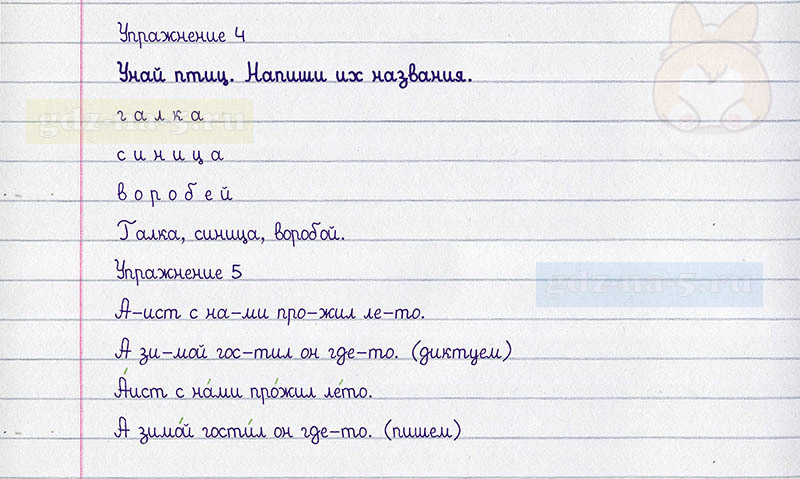 Упражнение 4
Узнай птиц. Напиши их названия.
г а л к а
gdz-na-5.ru
с и н и ц а
в о р о б е й
Галка, синица, воробой.
Упражнение 5
gdz-na-5.ru
А-ист с на-ми про-жил ле-то.
А зи-мой гос-тил он где-то. (диктуем)
А́ист с на́ми про́жил ле́то.
А зимо́й гости́л он где-то. (пишем)